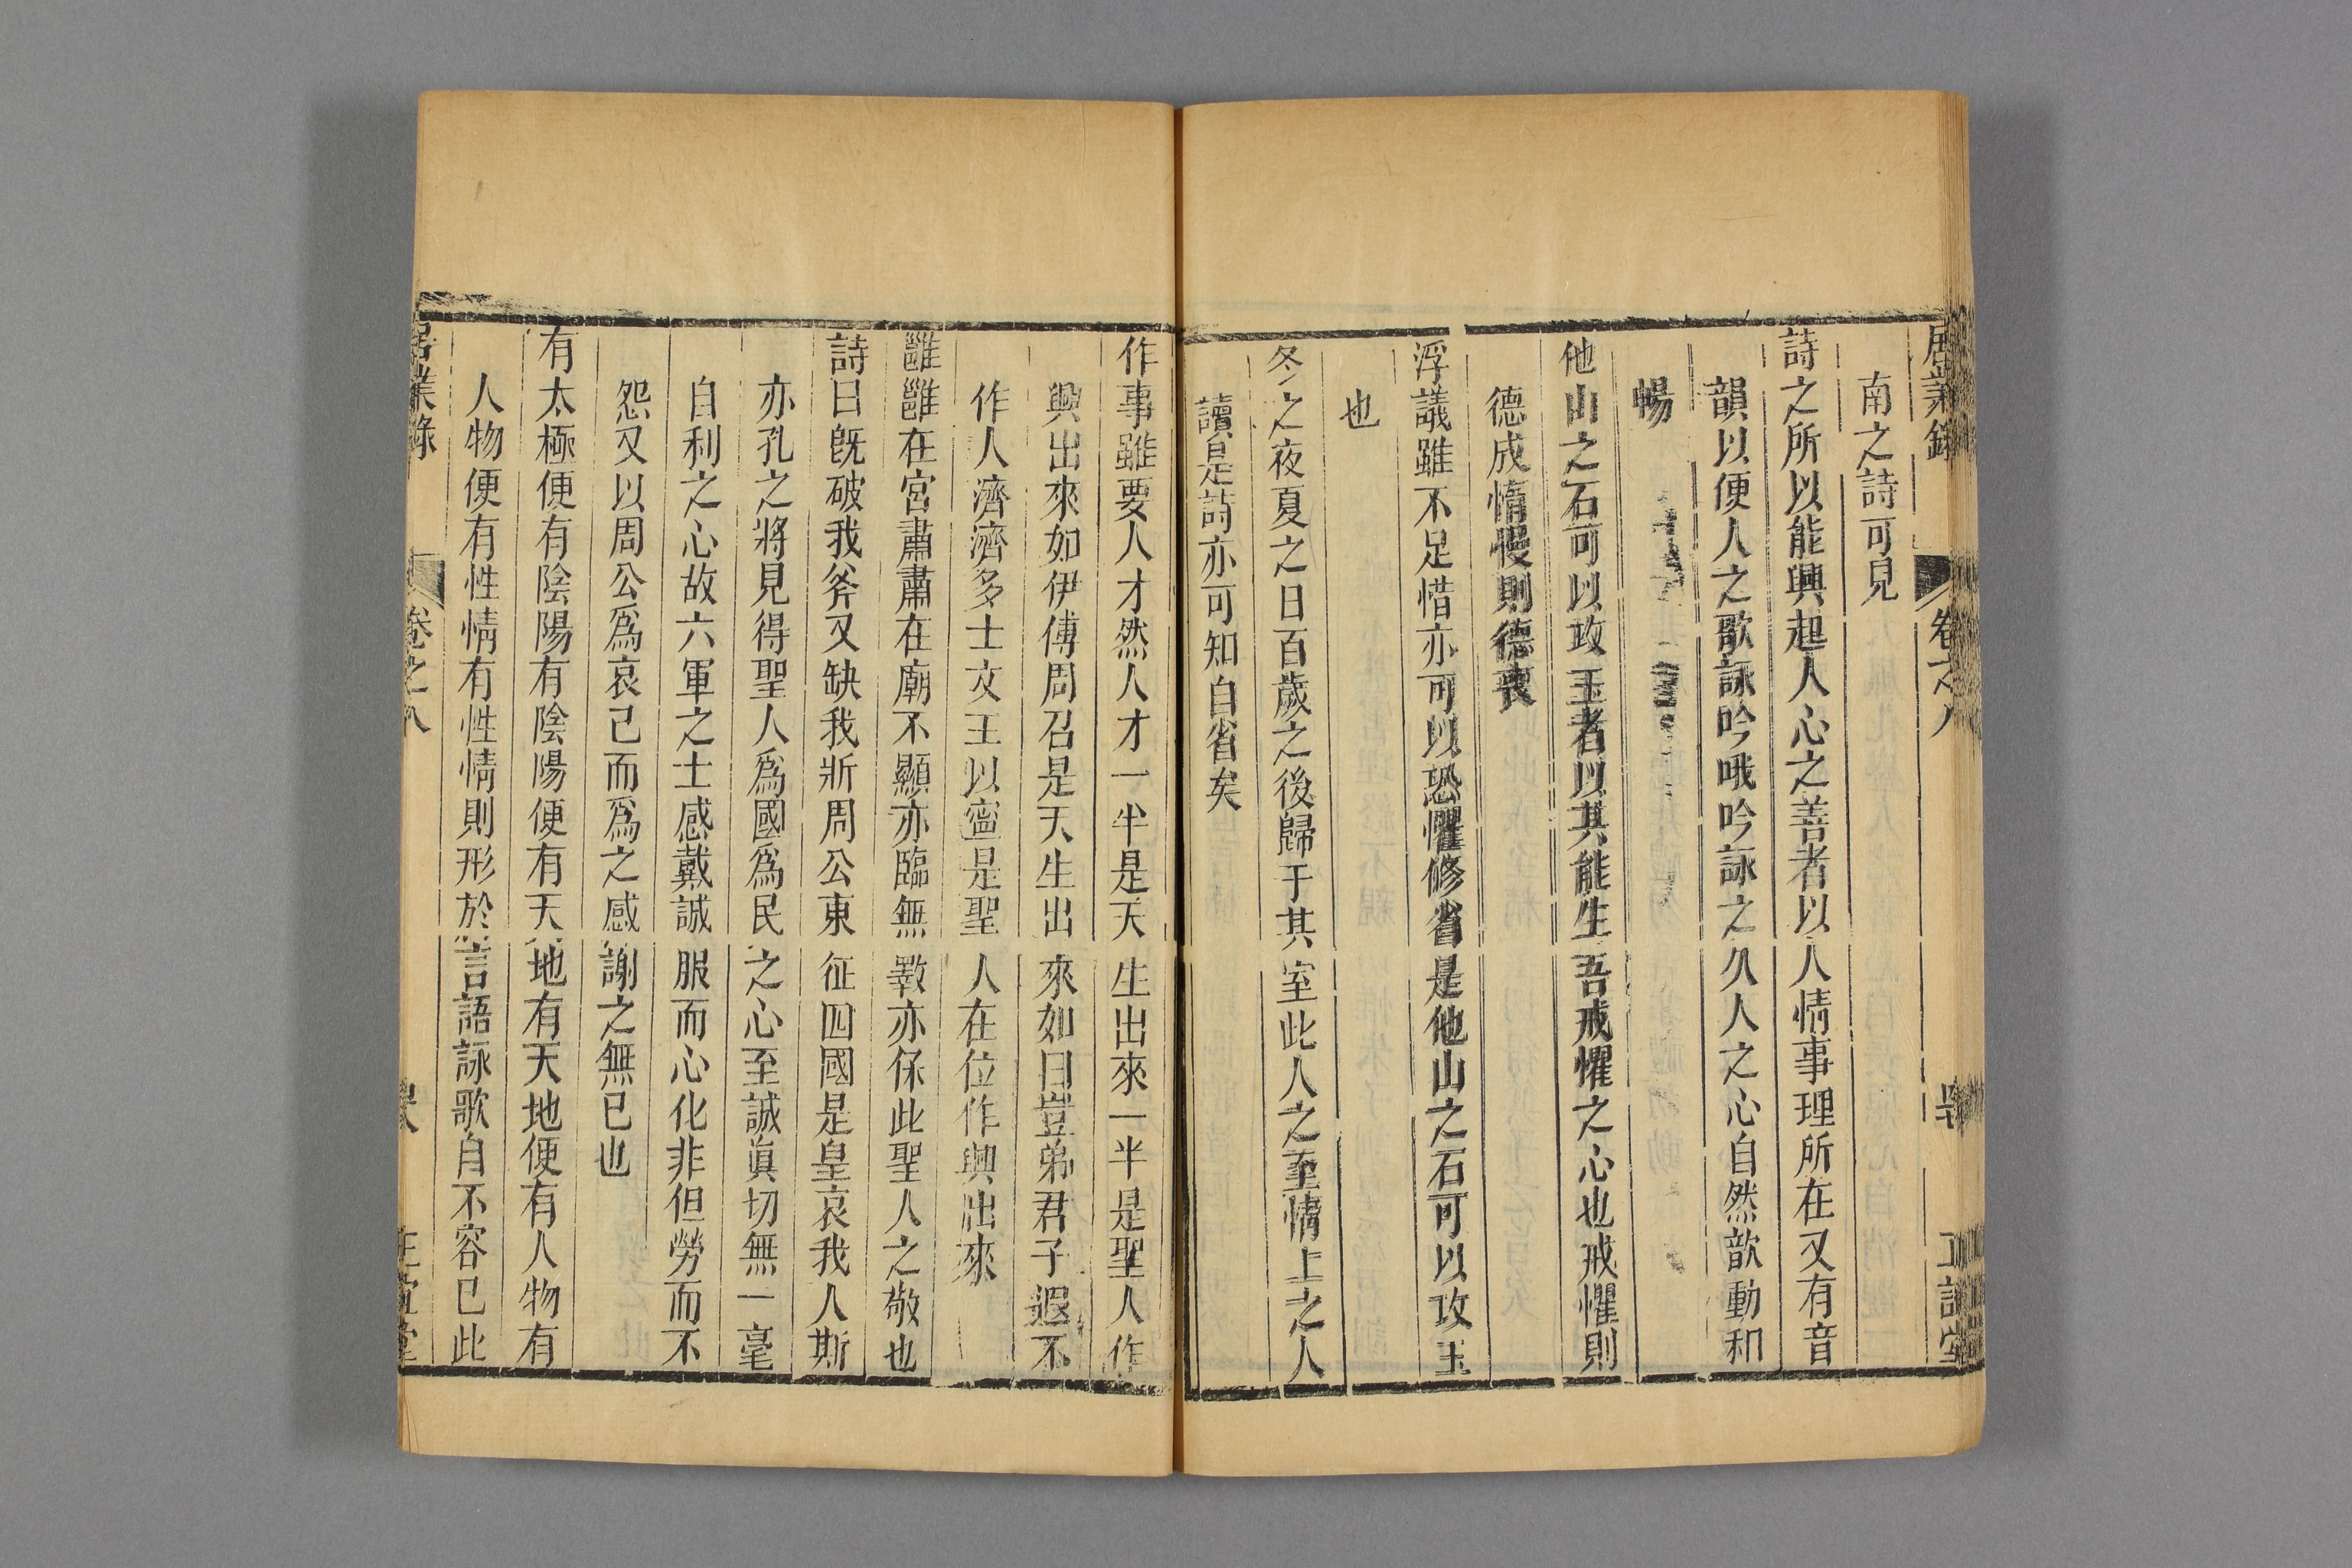 居業錄 卷之八 正誼堂
南之詩可見
詩之所以能興起人心之善者以人情事理所在又有音
韻以便人之歌詠吟哦吟詠之久人之心自然歆動和
暢
他山之石可以攻玉者以其能生吾戒懼之心也戒懼則
德成惰慢則德喪
浮議雖不足惜亦可以恐懼修省是他山之石可以攻玉
也
冬之夜夏之日百歲之後歸于其室此人之至情上之人
讀是詩亦可知自省矣
作事雖要人才然人才一半是天生出來一半是聖人作
興出來如伊傅周召是天生出來如曰豈弟君子遐不
作人濟濟多士文王以寧是聖人在位作興出來
雝雝在宮肅肅在廟不顯亦臨無斁亦保此聖人之敬也
詩曰既破我斧又缺我斨周公東征四國是皇哀我人斯
亦孔之將見得聖人爲國爲民之心至誠真切無一毫
自利之心故六軍之士感戴誠服而心化非但勞而不
怨又以周公爲哀己而爲之感謝之無已也
有太極便有陰陽有陰陽便有天地有天地便有人物有
人物便有性情有性情則形於言語詠歌自不容已此
居業錄 卷之八 正誼堂